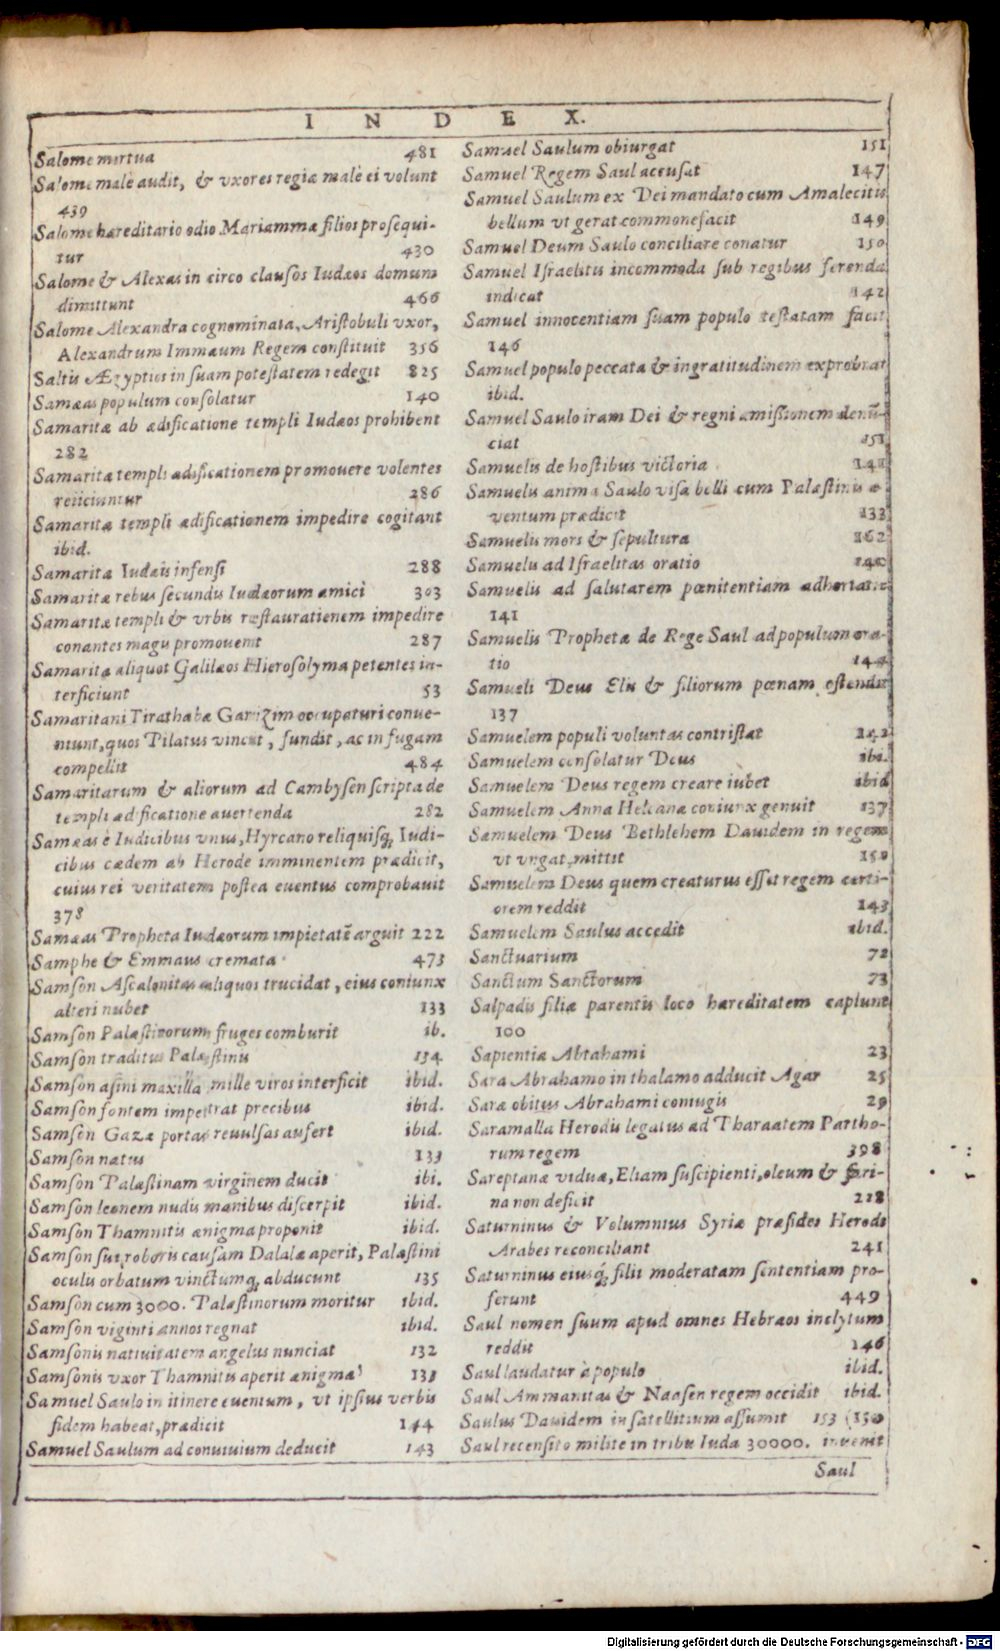 INDEX.
Salome mortua 481
Salome male audit, & vxores regiæ malè ei volunt
439
Salome hæreditario odio Mariammæ filios prosequi-
tur 430
Salome & Alexas in circo clausos Iudæos domum
dimittunt 466
Salome Alexandra cognominata, Aristobuli vxor,
Alexandrum Iannæum Regem constituit 356
Saltis Ægyptios in suam potestatem redegit 825
Samæas populum consolatur 140
Samaritæ ab ædificatione templi Iudæos prohibent
282
Samaritæ templi ædificationem promouere volentes
reiiciuntur 286
Samaritæ templi ædificationem impedire cogitant
ibid.
Samaritæ Iudæis infensi 288
Samaritæ rebus secundis Iudæorum amici 303
Samaritæ templi & vrbis restaurationem impedire
conantes magis promouent 287
Samaritæ aliquot Galilæos Hierosolyma petentes in-
terficiunt 53
Samaritani Tirathabæ Garizim occupaturi conue-
niunt, quos Pilatus vincit, fundit, ac in fugam
compellit 484
Samaritarum & aliorum ad Cambysen scripta de
templi ædificatione auertenda 282
Samæas è Iudicibus vnus, Hyrcano reliquisq́; Iudi-
cibus cædem ab Herode imminentem prædicit,
cuius rei veritatem postea euentus comprobauit
378
Samæas Propheta Iudæorum impietatē arguit 222
Samphe & Emmaus cremata 473
Samson Ascalonitas aliquos trucidat, eius coniunx
alteri nubet 133
Samson Palæstinorum fruges comburit ib.
Samson traditus Palæstinis 134
Samson asini maxilla mille viros interficit ibid.
Samson fontem impetrat precibus ibid.
Samson Gazæ portas reuulsas aufert ibid.
Samson natus 133
Samson Palæstinam virginem ducit ibi.
Samson leonem nudis manibus discerpit ibid.
Samson Thamnitis ænigma proponit ibid.
Samson sui roboris causam Dalalæ aperit, Palæstini
oculis orbatum vinctumq́; abducunt 135
Samson cum 3000. Palæstinorum moritur ibid.
Samson viginti annos regnat ibid.
Samsonis natiuitatem angelus nunciat 132
Samsonis vxor Thamnitis aperit ænigma 133
Samuel Saulo in itinere euentum, vt ipsius verbis
fidem habeat, prædicit 144
Samuel Saulum ad conuiuium deducit 143
Samuel Saulum obiurgat 151
Samuel Regem Saul accusat 147
Samuel Saulum ex Dei mandato cum Amalecitis
bellum vt gerat commonefacit 149
Samuel Deum Saulo conciliare conatur 150
Samuel Israelitis incommoda sub regibus ferenda
indicat 142
Samuel innocentiam suam populo testatam facit
146
Samuel populo peccata & ingratitudinem exprobrat
ibid.
Samuel Saulo iram Dei & regni amissionem denū-
ciat 151
Samuelis de hostibus victoria 141
Samuelis anima Saulo visa belli cum Palæstinis e-
uentum prædicit 133
Samuelis mors & sepultura 162
Samuelis ad Israelitas oratio 140
Samuelis ad salutarem pœnitentiam adhortatio
141
Samuelis Prophetæ de Rege Saul ad populum ora-
tio 144
Samueli Deus Elis & filiorum pœnam ostendit
137
Samuelem populi voluntas contristat 142
Samuelem consolatur Deus ibi.
Samuelem Deus regem creare iubet ibid
Samuelem Anna Helcanæ coniunx genuit 137
Samuelem Deus Bethlehem Dauidem in regem
vt vngat, mittit 150
Samuelem Deus quem creaturus esset regem certi-
orem reddit 143
Samuelem Saulus accedit ibid.
Sanctuarium 72
Sanctum Sanctorum 73
Salpadis filiæ parentis loco hæreditatem capiunt
100
Sapientia Abrahami 23
Sara Abrahamo in thalamo adducit Agar 25
Saræ obitus Abrahami coniugis 29
Saramalla Herodis legatus ad Tharaatem Partho-
rum regem 398
Sareptanæ viduæ, Eliam suscipienti, oleum & fari-
na non deficit 218
Saturninus & Volumnius Syriæ præsides Herodi
Arabes reconciliant 241
Saturninus eiusq́; filii moderatam sententiam pro-
ferunt 449
Saul nomen suum apud omnes Hebræos inclytum
reddit 146
Saul laudatur à populo ibid.
Saul Ammanitas & Naasen regem occidit ibid.
Saulus Dauidem in satellitium assumit 153 (150
Saul recensito milite in tribu Iuda 30000. inuenit
Saul
Digitalisierung gefördert durch die Deutsche Forschungsgemeinschaft - DFG